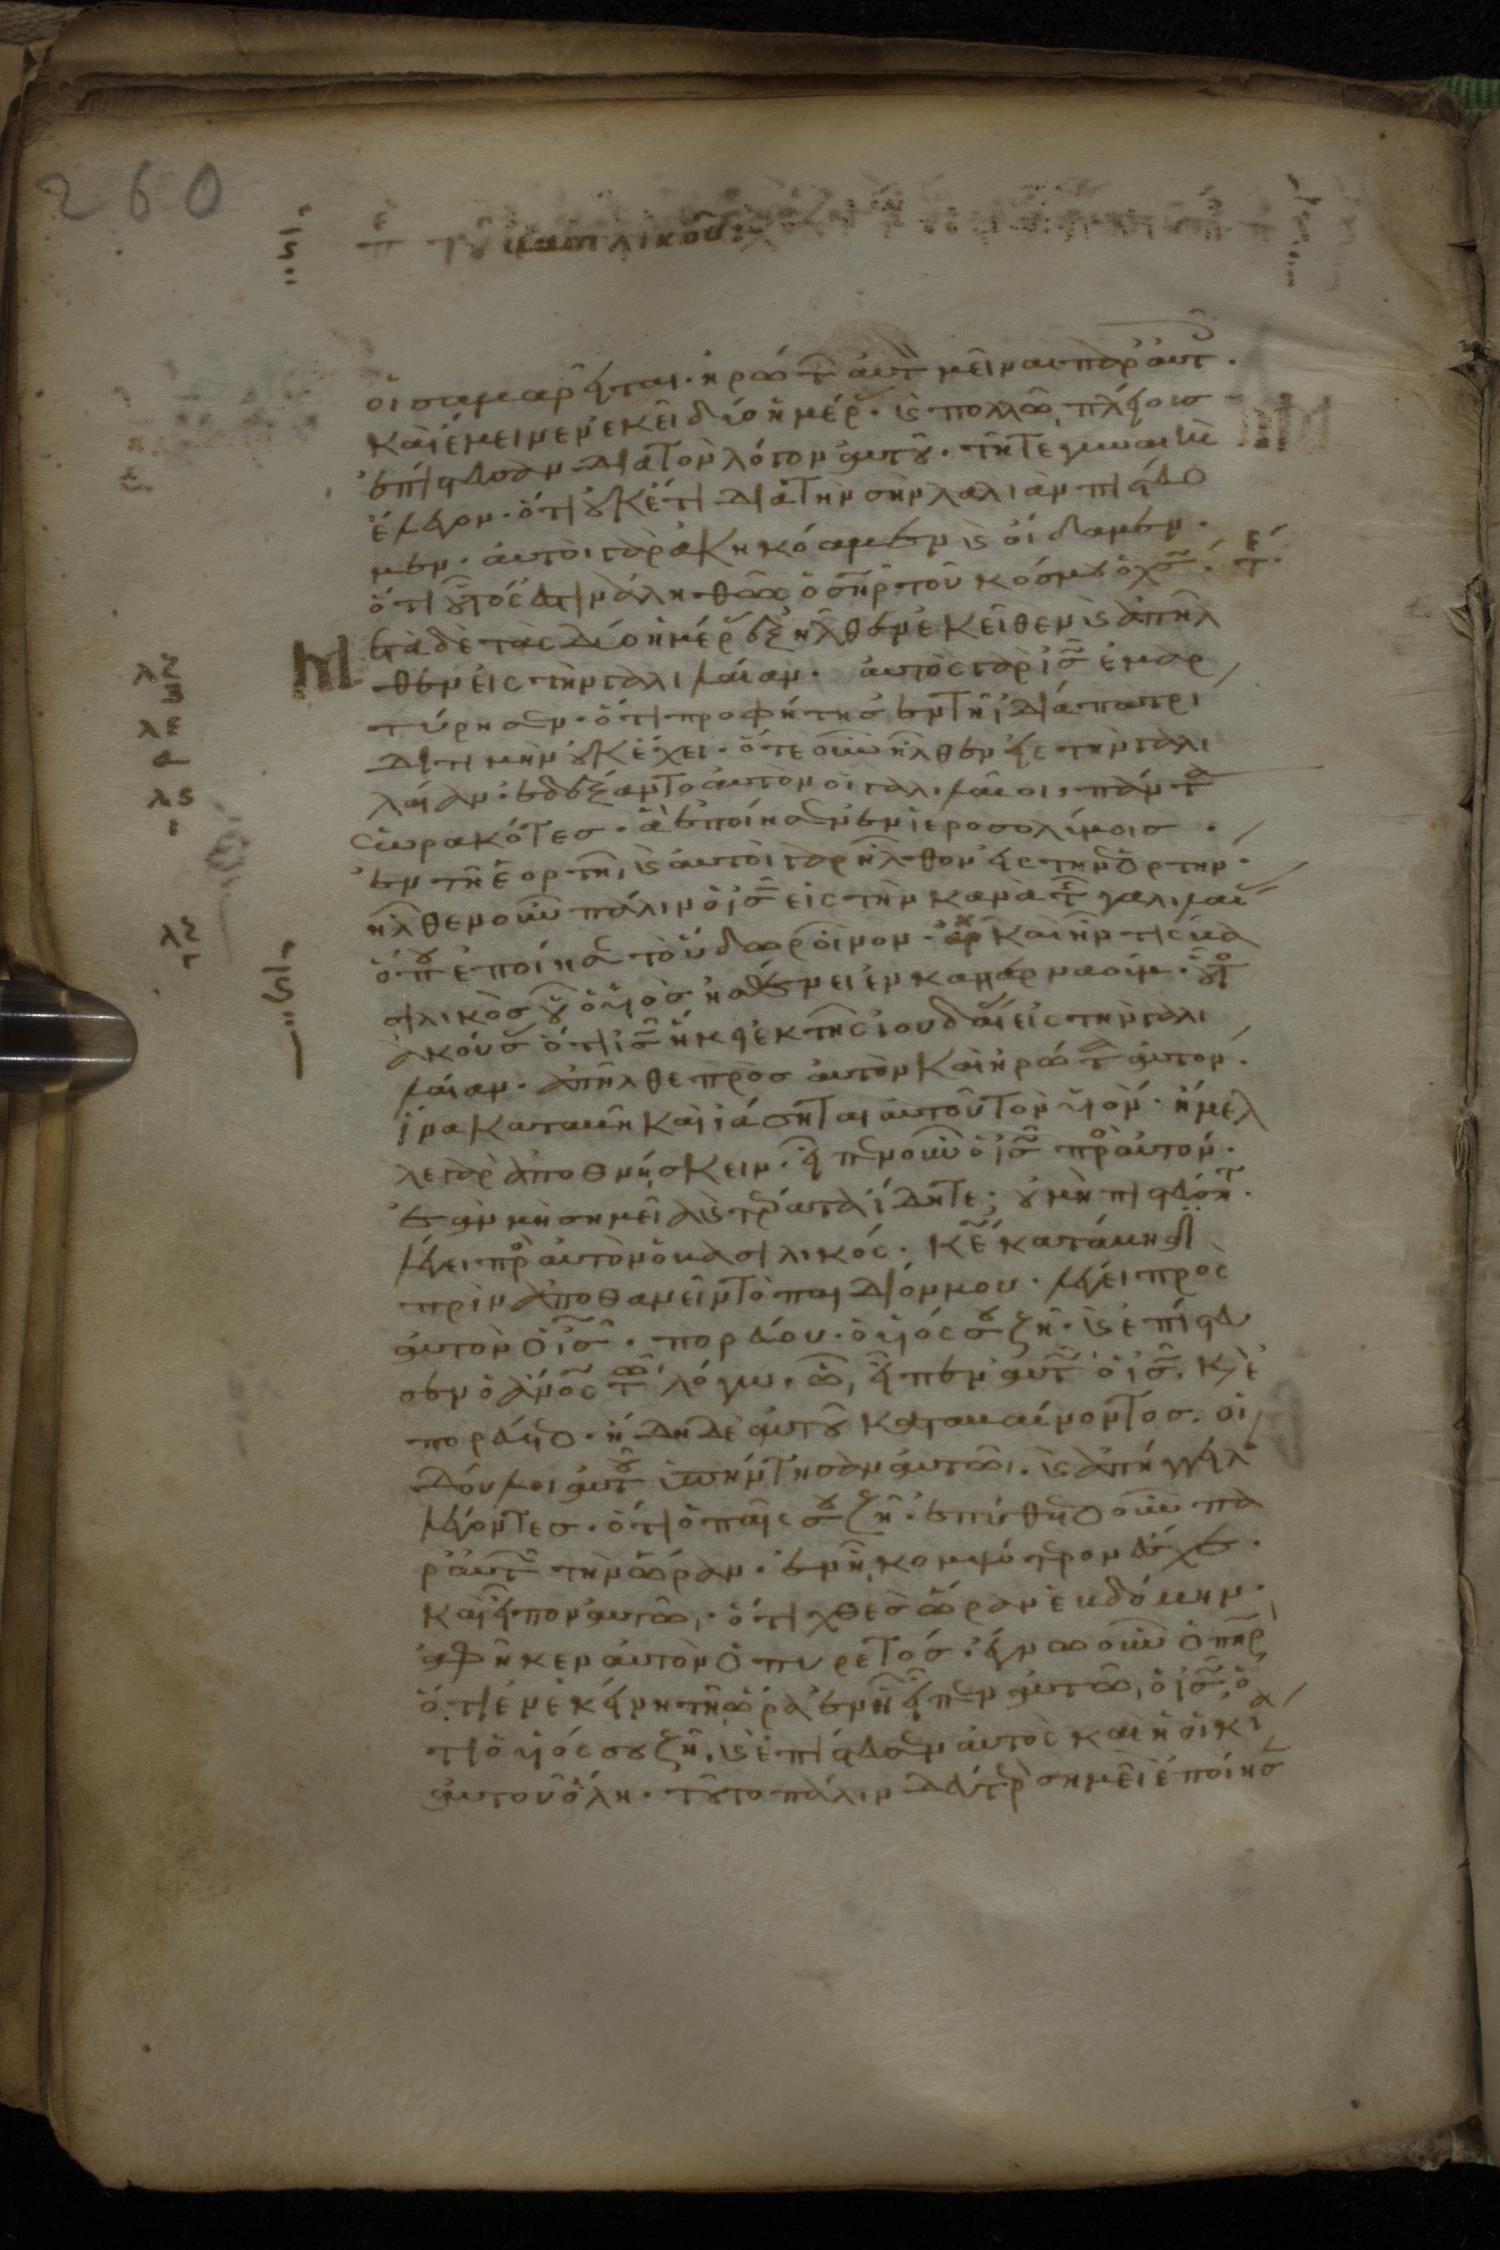 260
ϛ π τοῦ βασιλικοῦ:
οἱ σαμαρεῖται. ἠρώτ αὐτ μεῖναι παρ αὐτ.
καὶ ἔμεινεν ἐκεῖ δύο ἡμέρ. κ πολλῶ πλείοισ
ἐπίστευσαν διὰ τὸν λόγον αὐτοῦ. τῆ τε γυναικὶ
ἔλεγον. ὅτι οὐκέτι διὰ τὴν σὴν λαλιὰν πιστεύο
μεν. αὐτοὶ γὰρ ἀκηκόαμεν κ οἴδαμεν.
ὅτι οὗτός ἐστιν ἀληθῶς ὁ σηρ τοῦ κόσμου ὁ χσ. τε
Μετὰ δὲ τὰς δύο ἡμέρ ἐξῆλθεν ἐκεῖθεν κ ἀπῆλ
λζ θεν εἰς τὴν γαλιλαίαν. αὐτὸς γὰρ ισ ἐμαρ
λε τύρησεν. ὅτι προφήτησ ἐν τῆ ἰδία πατρί
α δι τιμὴν οὐκ ἔχει. ὅτε οὖν ἦλθεν εἰς τὴν γαλι
λϛ λαίαν. ἐδέξαντο αὐτὸν οἱ γαλιλαῖοι, πάντα
ι ἑωρακότεσ. ἃ ἐποίησεν ἐν ἱεροσολύμοισ.
ἐν τῆ ἑορτῆ, κ αὐτοὶ γὰρ ἦλθον εἰς τὴν ἑορτήν.
ἦλθεν οὖν πάλιν ὁ ισ εἰς τὴν κανὰ τ γαλιλαί
λζ ὅπου ἐποίησ τὸ ὕδωρ οἶνον. ἀρχ καὶ ἦν τις βα
ϛ σιλικὸσ οὗ ὁ υἱὸσ ἠσθένει ἐν καπαρναούμ. οὗτο
ἀκούσ ὅτι ισ ἥκει ἐκ τῆς ἰουδαί εἰς τὴν γαλι
λαίαν. ἀπῆλθε πρὸσ αὐτὸν καὶ ἠρώτα αὐτόν.
ἵνα καταβῆ καὶ ἰάσηται αὐτοῦ τὸν υἱόν. ἤμελ
λε γὰρ ἀποθνήσκειν. εἶπεν οὖν ὁ ισ προ αὐτόν.
ἐὰν μὴ σημεῖα κ τέρατα ἴδητε, οὐ μὴ πιστεύσητ.
λέγει προ αὐτὸν ὁ βασιλικός. κε κατάβηθι
πρὶν ἀποθανεῖν τὸ παιδίον μου. λέγει πρὸς
αὐτὸν ὁ ισ. πορεύου. ὁ υἱός σου ζῆ. κ ἐπίστευ
σεν ὁ ἄνος τῶ λόγω. ὧ εἶπεν αὐτ ὁ ισ. κ ἐ
πορεύετο. ἤδη δὲ αὐτοῦ καταβαίνοντοσ. οἱ
δοῦλοι αὐτοῦ ὑπήντησαν αὐτῶι. κ ἀπήγγειλ
λέγοντεσ. ὅτι ὁ παῖς σου ζῆ. ἐπύθετο οὖν πα
ρ αὐτ τὴν ὥραν. ἐν ἧ κομψότερον ἔσχε.
καὶ εἶπον αὐτῶ. ὅτι χθὲσ ὥραν ἑβδόμην.
ἀφῆκεν αὐτὸν ὁ πυρετόσ. ἔγνω οὖν ὁ πηρ
ὅτι ἐν ἐκείνη τῆ ὥρα ἐν ἧ εἶπεν αὐτῶ ὁ ισ, ὅ
τι ὁ υἱός σου ζῆ, κ ἐπίστευσεν αὐτὸς καὶ ἡ οἰκία
αὐτοῦ ὅλη. τοῦτο πάλιν δεύτερ σημεῖ ἐποίησ